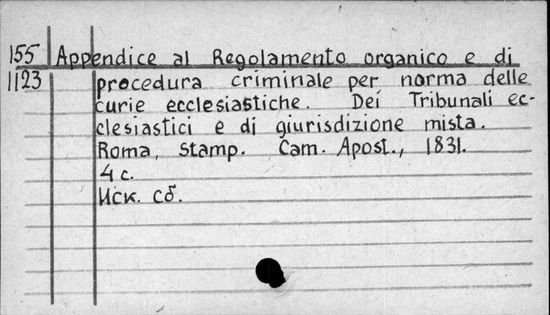 155 Appendice al Regolamento organico e di
1123 procedura criminale per norma delle
curie ecclesiastiche. Dei Tribunali ec-
clesiastici e di giurisdizione mista.
Roma, stamp. Cam. Apost., 1831.
4 с.
Иск. сб.